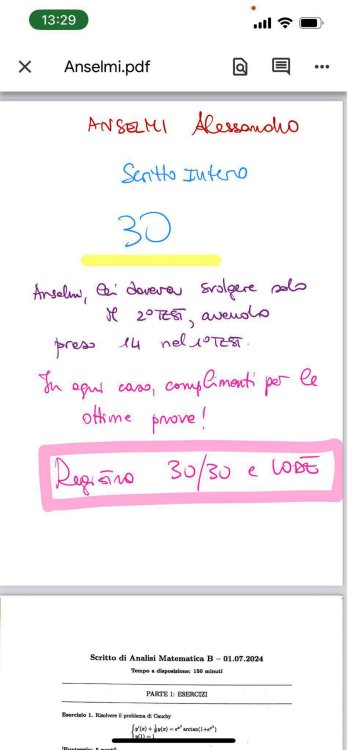 13:29
Anselmi.pdf
ANSELMI Alessandro
Scritto Intero
30
Anselmi, Lei doveva svolgere solo
il 2º TEST, avendo
preso 14 nel 1º TEST.
In ogni caso, complimenti per le
ottime prove!
Registro 30/30 e LODE
Scritto di Analisi Matematica B – 01.07.2024
Tempo a disposizione: 150 minuti
PARTE 1: ESERCIZI
Esercizio 1. Risolvere il problema di Cauchy